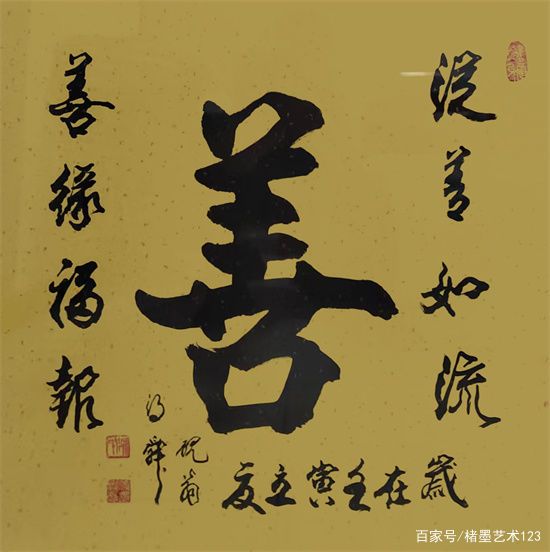 從善如流
善
善緣福報
歲在壬寅立夏
硯翁
百家号/楮墨艺术123